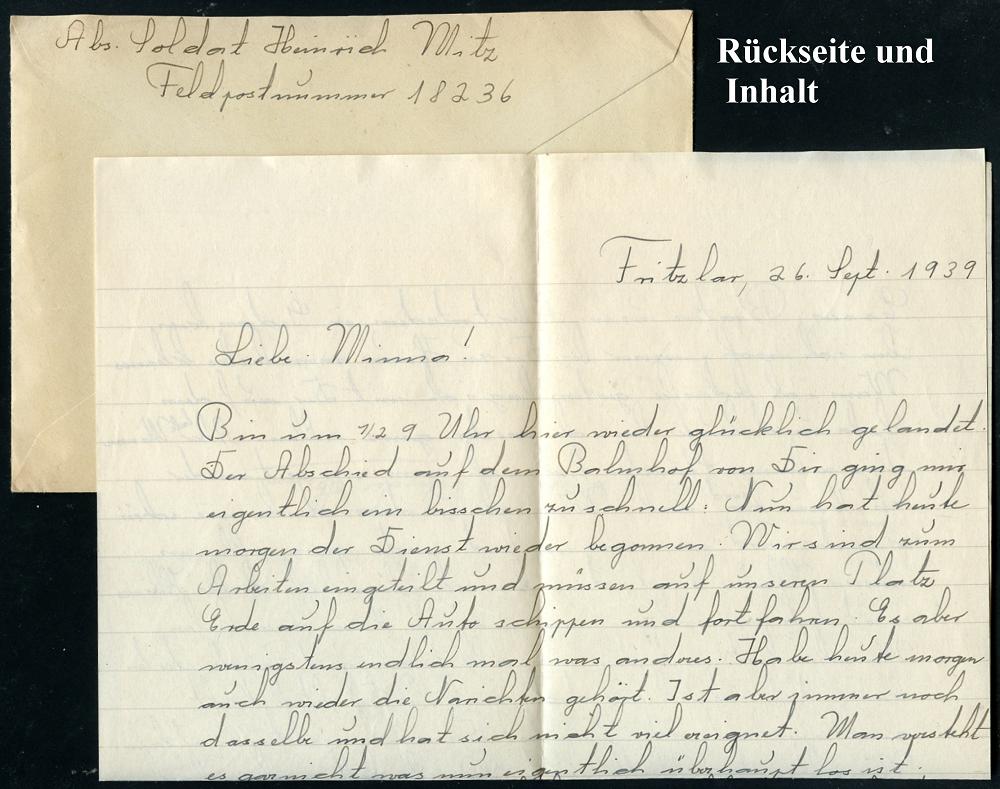 Abs. Soldat Heinrich Mitz
Feldpostnummer 18236
Rückseite und
Inhalt
Fritzlar, 26. Sept. 1939
Liebe Minna!
Bin um 1/2 9 Uhr hier wieder glücklich gelandet.
Der Abschied auf dem Bahnhof von Dir ging mir
eigentlich ein bisschen zu schnell. Nun hat heute
morgen der Dienst wieder begonnen. Wir sind zum
Arbeiten eingeteilt und müssen auf unseren Platz
Erde auf die Auto schippen und fortfahren. Es aber
wenigstens endlich mal was anderes. Habe heute morgen
auch wieder die Narichten gehört. Ist aber immer noch
dasselbe und hat sich nicht viel ereignet. Man versteht
es garnicht was nun eigentlich überhaupt los ist.